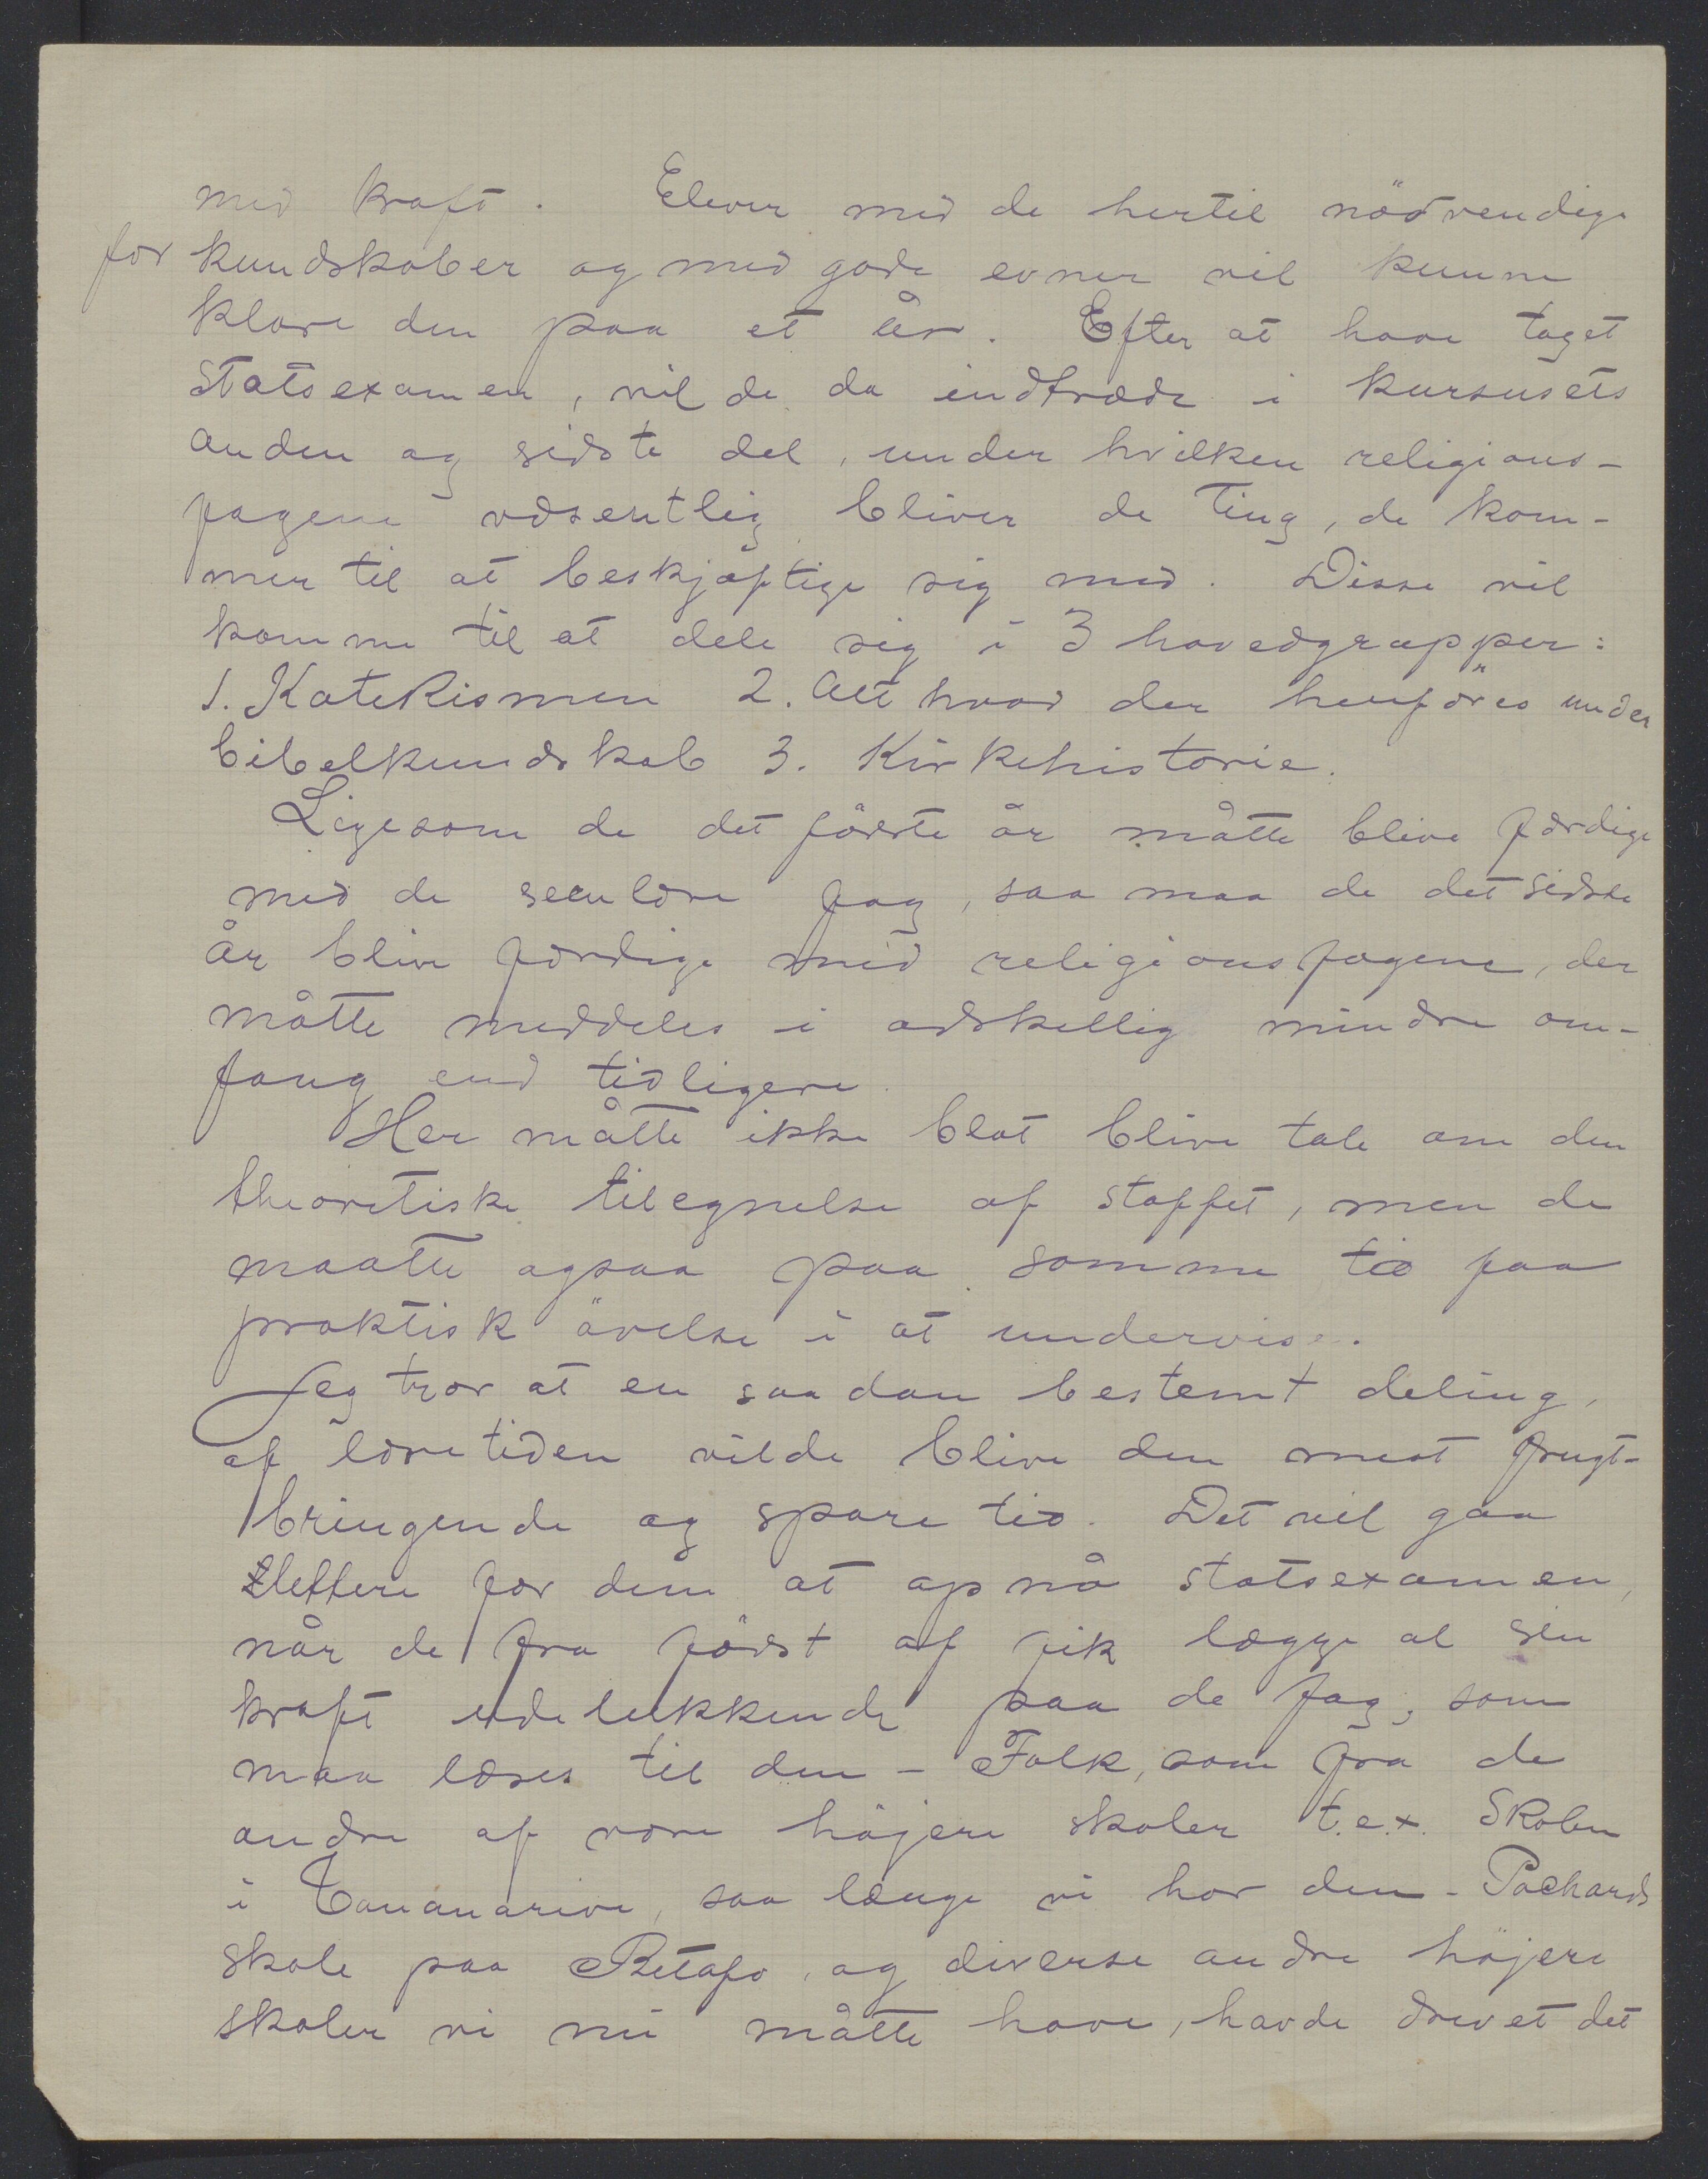 med kraft. Elever med de hertil nödvendige
for kundskaber og med gode evner vil kunne
klare den paa et år. Efter at have taget
Statsexamen, vil de da indtræde i kursusets
anden og sidste del, under hvilken religions-
fagene væsentlig bliver de Ting, de kom-
mer til at beskjæftige sig med. Disse vil
komme til at dele sig i 3 hovedgrupper:
1. Katekismen 2. Alt hvad der henföres under
bibelkundskab 3. Kirkehistorie.
Ligesom de det förste år måtte blive færdige
med de seculære fag, saa maa de det sidste
år blive færdige med religionsfagene, der
måtte meddeles i adskillig mindre om-
fang end tidligere.
Her måtte ikke blot blive tale om den
theoretiske tilegnelse af stoffet, men de
maatte ogsaa paa samme tid faa
praktisk övelse i at undervise.
Jeg tror at en saadan bestemt deling,
af læretiden vilde blive den mest frugt-
bringende og spare tid. Det vil gaa
lettere for dem at opnå statsexamen,
når de fra först af fik lægge al sin
kraft udelukkende paa de fag, som
maa læses til den - Folk, som fra de
andre af vore höjere skoler t.ex. Skolen
i Tananarive, saa længe vi har den - Pochards
skole paa Betafo, og diverse andre höjere
skoler vi nu måtte have, havde drevet det